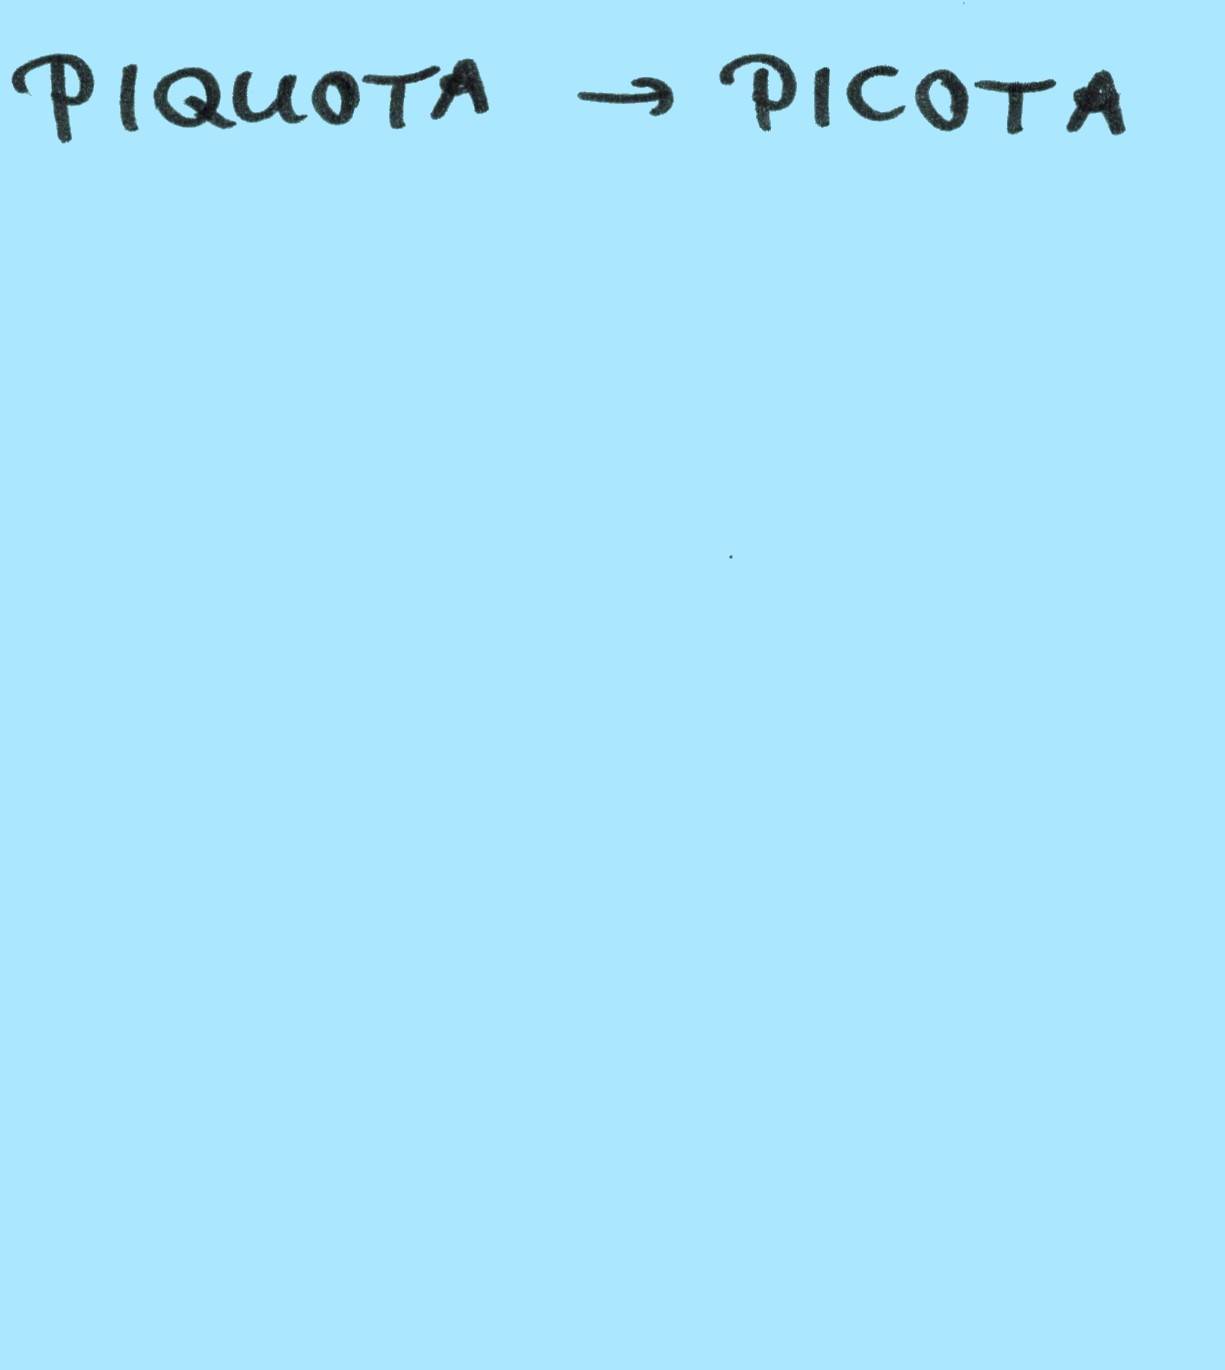 PIQUOTA → PICOTA